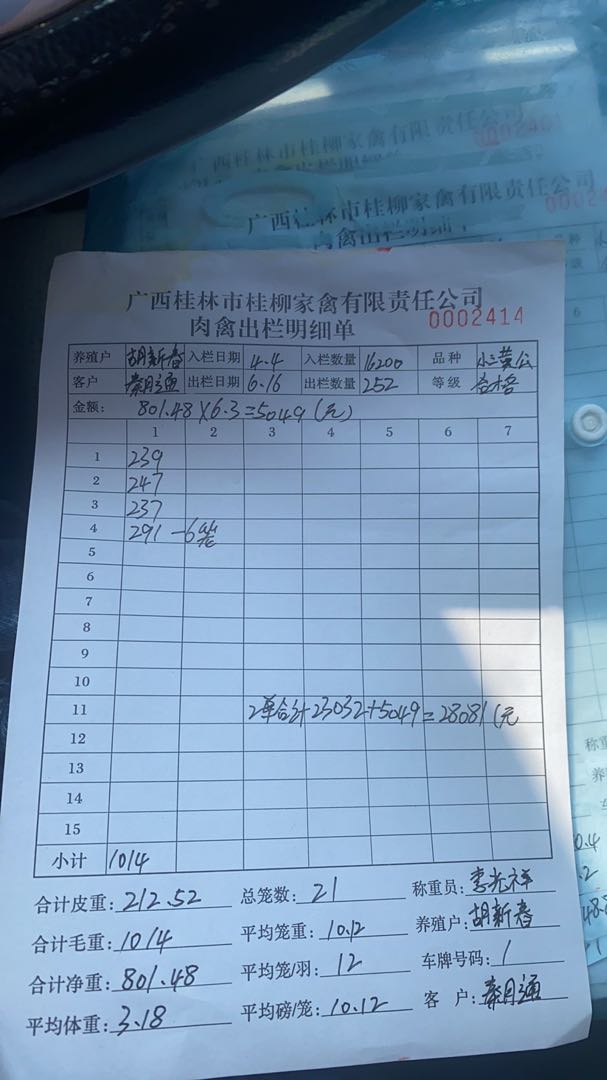 广西桂林市桂柳家禽有限责任公司 0002461
广西桂林市桂柳家禽有限责任公司
广西桂林市桂柳家禽有限责任公司
肉禽出栏明细单 0002414
养殖户 胡新春 入栏日期 4.4 入栏数量 16200 品种 小三黄公
客户 秦月通 出栏日期 6.16 出栏数量 252 等级 合格
金额: 801.48×6.3=5049(元)
1 2 3 4 5 6 7
1 239
2 247
3 237
4 291 -6笼
5
6
7
8
9
10
11 2单合计23032+5049=28081(元
12
13
14
15
小计 1014
合计皮重: 212.52 总笼数: 21 称重员: 李光祥
合计毛重: 1014 平均笼重: 10.12 养殖户: 胡新春
合计净重: 801.48 平均笼/羽: 12 车牌号码: 1
平均体重: 3.18 平均磅/笼: 10.12 客 户: 秦月通